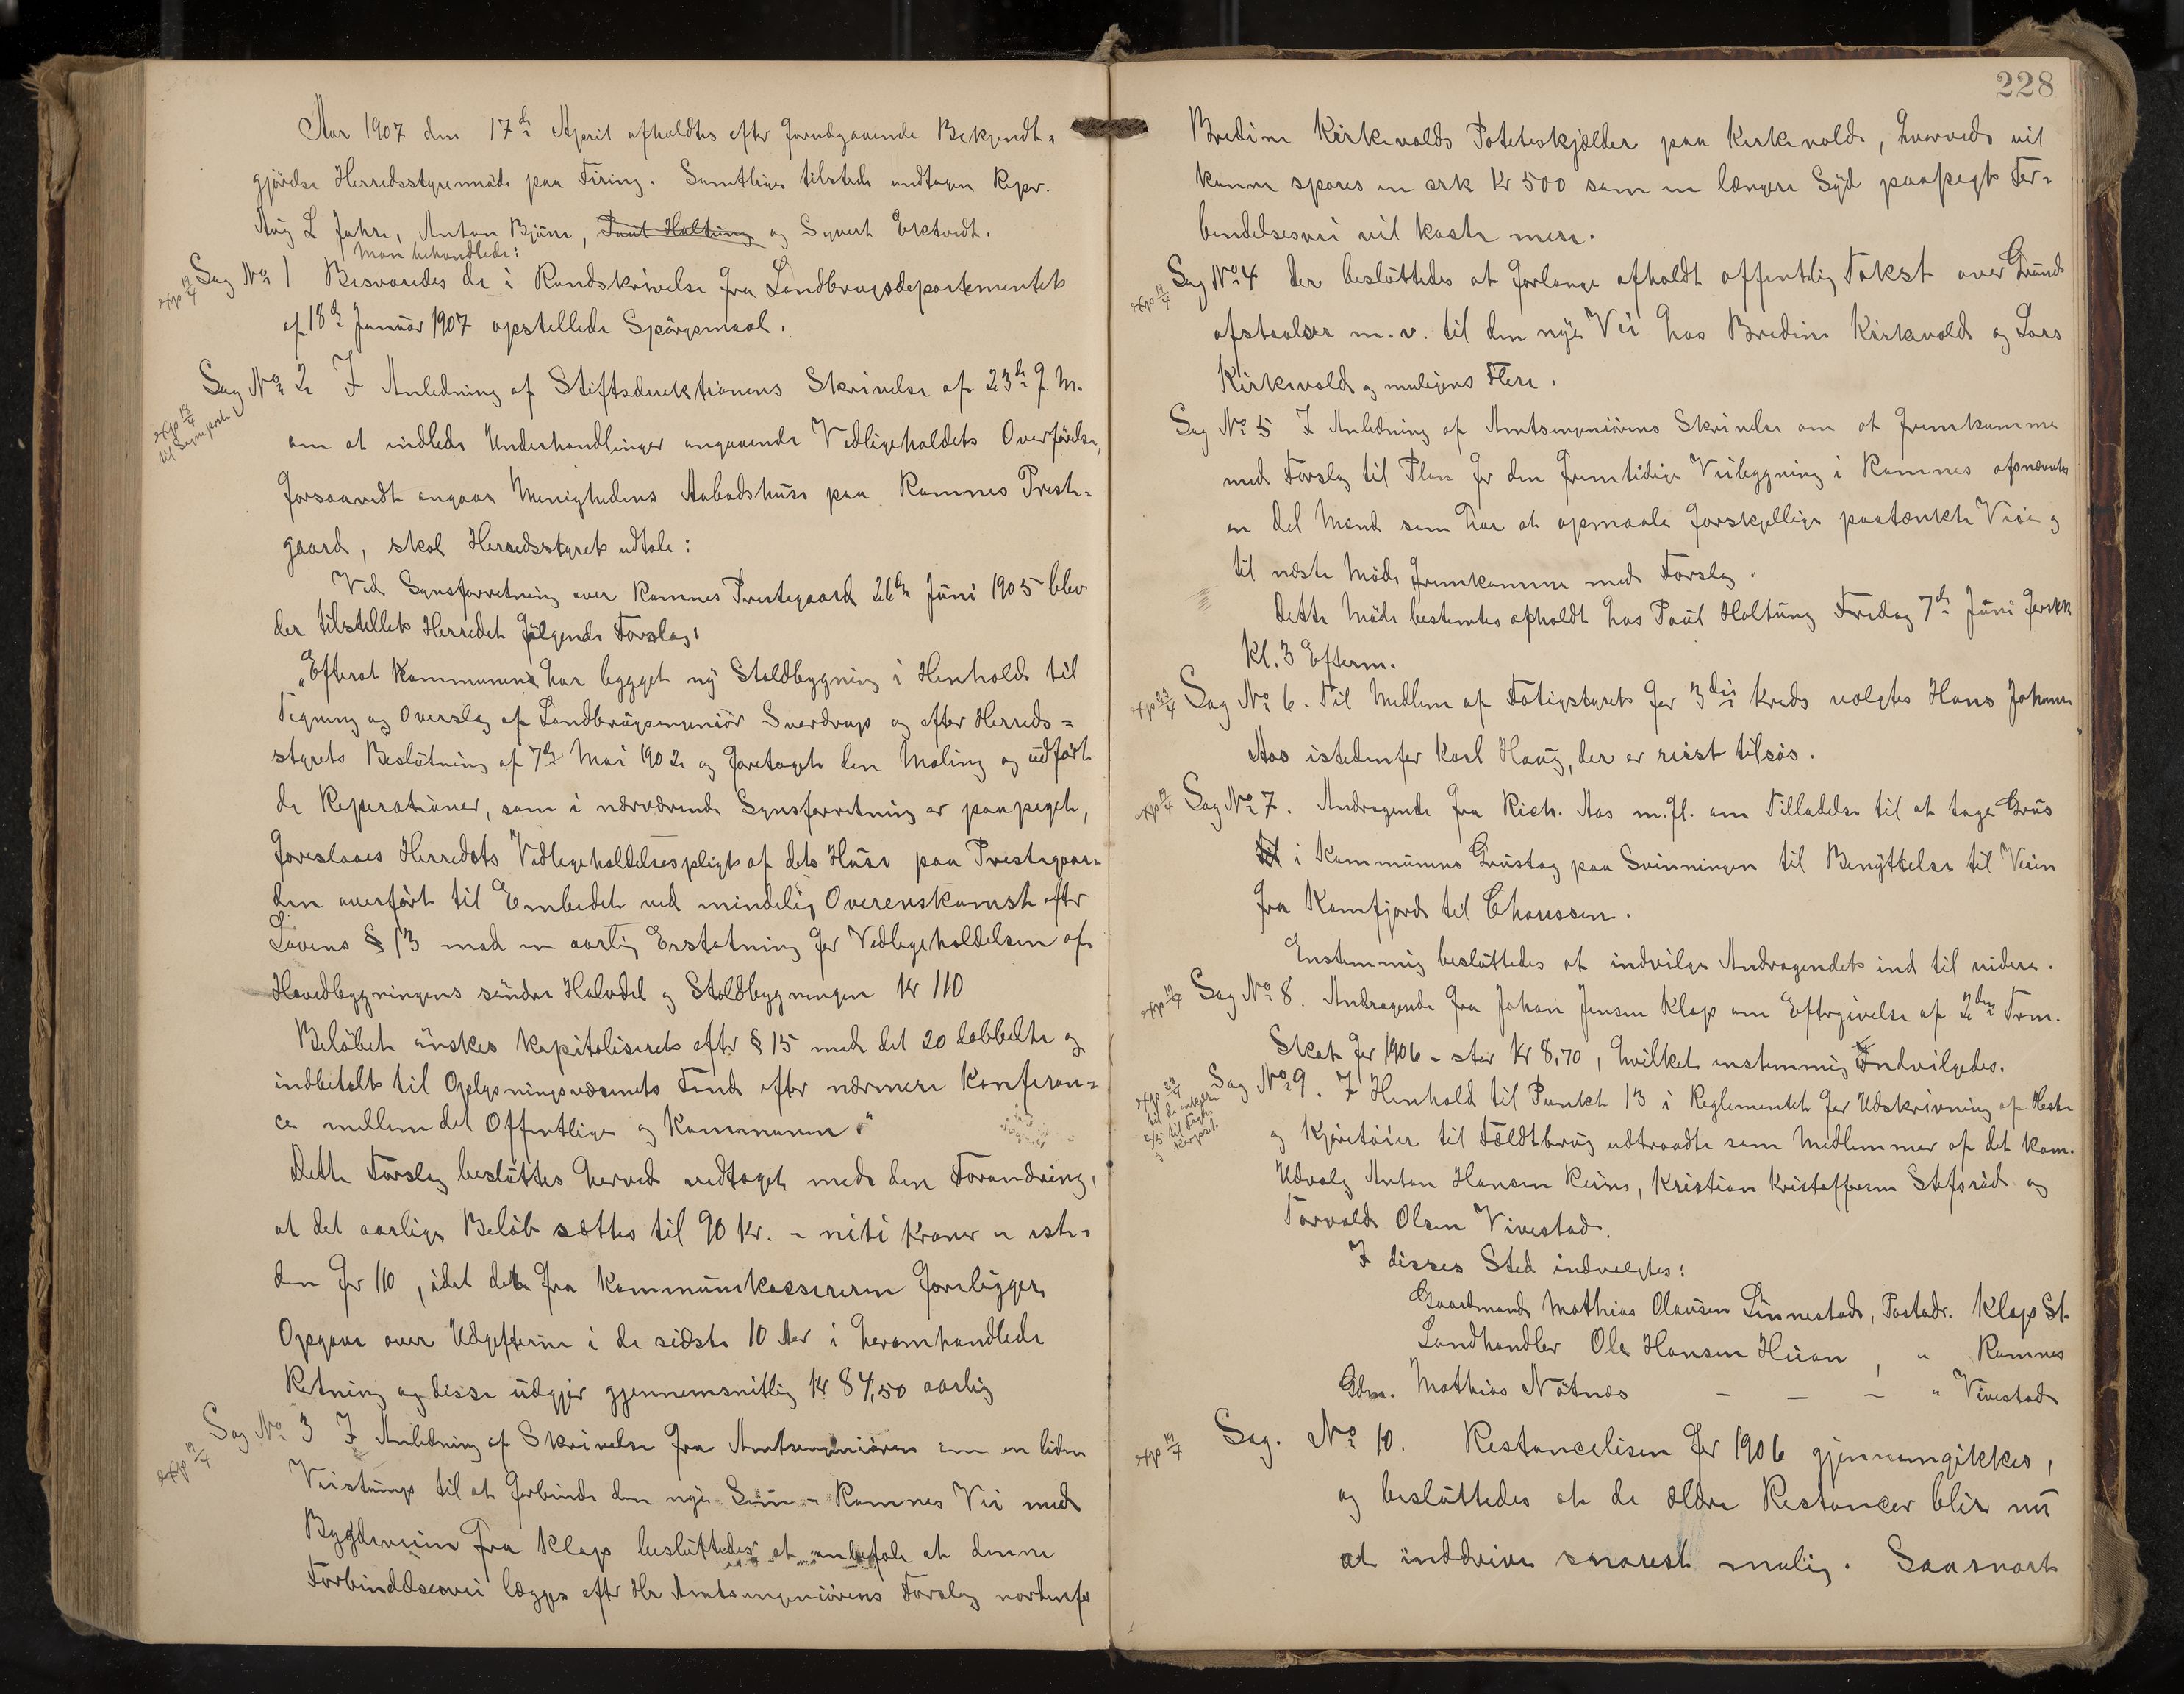 Aar 1907 den 17de April afholdtes efter forudgaaende Bekjendt-
gjörelse Herredsstyremöde paa Firing. Samtlige tilstede undtagen Repr.
Aug L Jahre, Anton Bjune, Paul Holtung og Syvert Erktvedt.
Man behandlede:
exp 19/4
Sag No 1 Besvaredes de i Rundskrivelse fra Landbrugsdepartementet
af 18de Januar 1907 opstillede Spörgsmaal.
exp 18/4
Sag No 2 I Anledning af Stiftsdirektionens Skrivelse af 23de f. M.
om at indlede Underhandlinger angaaende Vedligeholdets Overförelse,
forsaavidt angaar Menighedens Aabodshuse paa Ramnes Prest-
gaard, skal Herredsstyret udtale:
Ved Synsforretning over Ramnes Prestegaard 26de Juni 1905 blev
der tilstillet Herredet fölgende Forslag:
„Efterat Kommunen har bygget ny Staldbygning i Henhold til
Tegning og Overslag af Landbrugsingeniör Sverdrup og efter Herreds-
styrets Beslutning af 7de Mai 1902 og foretaget den Maling og udfört
de Reperationer, som i nærværende Synsforretning er paapeget,
foreslaaes Herredets Vedligeholdelsespligt af dets Huse paa Prestegaar-
den overfört til Embedet ved mindelig Overenskomst efter
Lovens § 13 mod en aarlig Erstatning for Vedligeholdelsen af
Hovedbygningens söndre Halvdel og Staldbygningen Kr 110
Belöbet önskes kapitaliseret efter § 15 med det 20 dobbelte og
indbetalt til Oplysningsvæsenets Fond efter nærmere Konferan-
ce mellem det Offentlige og Kommunen."
Dette Forslag besluttes herved vedtaget med den Forandring,
at det aarlige Belöb sættes til 90 Kr. - niti Kroner - iste-
den for 110, idet der fra Kommunekassereren foreligger
Opgave over Udgifterne i de sidste 10 Aar i heromhandlede
Retning og disse udgjör gjennemsnitlig Kr 84,50 aarlig
exp 19/4
Sag No 3 I Anledning af Skrivelse fra Amtsingeniören om en liden
Veistump til at forbinde den nye Sem - Ramnes Vei med
Bygdeveien fra Klop besluttedes at anbefale at denne
Forbindelsesvei lægges efter Hr Amtsingeniörens Forslag nordenfor
228
Bredine Kirkevolds Poteteskjælder paa Kirkevold, hvorved vil
kunne spares en ca Kr 500 som en længere Syd paapegt For-
bindelsesvei vil koste mere.
exp 19/4
Sag No 4 Der besluttedes at forlange afholdt offentlig Takst over Grund
afstaaelser m.v. til den nye Vei hos Bredine Kirkevold og Lars
Kirkevold og muligens Flere.
Sag No 5 I Anledning af Amtsingeniörens Skrivelse om at fremkomme
med Forslag til Plan for den fremtidige Veibygning i Ramnes opnævntes
en del Mænd som har at opmaale forskjellige paatænkte Veie og
til næste Möde fremkomme med Forslag.
Dette Möde bestemtes afholdt hos Paul Holtung Fredag 7de Juni förstk
Kl. 3 Efterm.
exp 23/4
Sag No 6. Til Medlem af Fatigstyret for 3die Kreds valgtes Hans Johansen
Aas istedenfor Karl Haug, der er reist tilsös.
exp 19/4
Sag No 7. Andragende fra Rich. Aas m.fl. om Tilladelse til at tage Grus
i Kommunens Grustag paa Svinningen til Benyttelse til Veien
fra Kamfjord til Chausseen.
Enstemmig besluttedes at indvilge Andragendet ind til videre.
exp 19/4
Sag No 8. Andragende fra Johan Jensen Klop om Eftergivelse af 2den Term.
Skat for 1906 - stor Kr 8,70, hvilket enstemmig Indvilgedes.
exp 23/4
Sag No 9. I Henhold til Punkt 13 i Reglementet for Udskrivning af Heste
og Kjöretöier til Feldtbrug udtraadte som Medlemmer af det kom.
Udvalg Anton Hansen Reine, Kristian Kristoffersen Stafsrød og
Torvald Olsen Vivestad.
I disses Sted indvalgtes:
Gaardmand Mathias Olausen Linnestad, Postadr. Klop St.
Landhandler Ole Hansen Huan, " Ramnes
Gdm. Mathias Nötnæs - - - " Vivestad
exp 19/4
Sag. No 10. Restancelisen for 1906 gjennemgikkes,
og besluttedes at de ældre Restancer blir nu
at inddrive snarest mulig. Saasnart